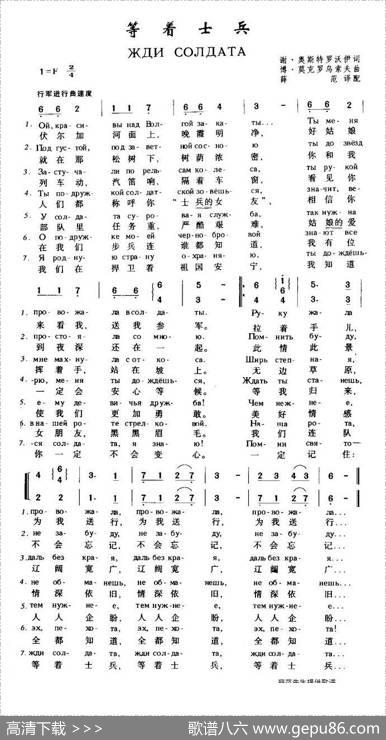 等着士兵
ЖДИ СОЛДАТА
谢·奥斯特罗沃伊词
1=F 2/4
博·莫克罗乌索夫曲
薛 范译配
行军进行曲速度
6 6 2 1 1 7 6 6 2
1. Ой, кра- си- вы над Вол- гой за ка- ты... Ты ме- ня
伏尔加 河面上, 晚霞明净, 好姑娘
2. Под гус- той, под за- вет- ной сос- но- ю ты до звёзд
就在那 松树下, 树荫浓密, 你和我
3. За- сту- ча- ли по рель- сам ко- ле- са, ты ру- кой
列车动, 汽笛响, 隔着车窗, 看见你
4. Ты по- друж- кой сол- дат- ской зо- вёшь- ся, зна- чит, ве-
人们都 称呼你 “士兵的女友”, 相信你
5. У сол- да- та су- ро- ва- я служ- ба, так нуж- на
部队里 任务重, 严酷艰难, 姑娘的爱
6. О по- друж- ке мо- ей чер- но- бро- вой зна- ют все
在我们 步兵连 谁都知道, 我有位
7. Я род- ну- ю стра- ну о- хра- ня- ю, ты до- ждёшь-
我们在 捍卫着 祖国安宁, 我知道
1. про- во- жа- ла в сол- да- ты. Ру- ку жа- ла
来看我, 送我参军。 拉着手儿,
2. про- сто- я- ла со мно- ю. Пом- нить бу- ду,
到夜深 还在一起。 此情此景
3. мне мах- ну- ла с от- ко- са. Ширь степ- на- я,
挥着手, 站在坡上。 无边草原,
4. -рю, ме- ня ты до- ждёшь- ся, Ждать ты ста- нешь,
一定会 安心等候。 等我归来,
5. е- му де- ви- чья друж- ба! Чем неж- не- е,
使我们 更加勇敢。 美好情感
6. в на- шей ро- те стрел- ко- вой. На- ша ро- та,
女朋友, 黑黑眉毛。 我们连队
7. -ся сол- да- та, я зна- ю! Пом- ни свя- то—
你一定 不会变心。 一定记住:
1. про- во- жа- ла, про- во- жа- ла, про- во- жа- ла...
为我送行, 为我送行, 为我送行...
2. не за- бу- ду, не за- бу- ду, не за- бу- ду...
不会忘记, 不会忘记, 不会忘记...
3. даль без кра- я, даль без кра- я, даль без кра- я...
辽阔宽广, 辽阔宽广, 辽阔宽广...
4. не об- ма- нешь, не об- ма- нешь, не об- ма- нешь...
情深依旧, 情深依旧, 情深依旧...
5. тем нуж- не- е, тем нуж- не- е, тем нуж- не- е...
人人企盼, 人人企盼, 人人企盼...
6. эх, пе- хо- та, эх, пе- хо- та, эх, пе- хо- та...
全都知道, 全都知道, 全都知道...
7. жди сол- да- та, жди сол- да- та, жди сол- да- та...
等着士兵, 等着士兵, 等着士兵...
高清下载 >>>
歌谱八六 — www.gepu86.com